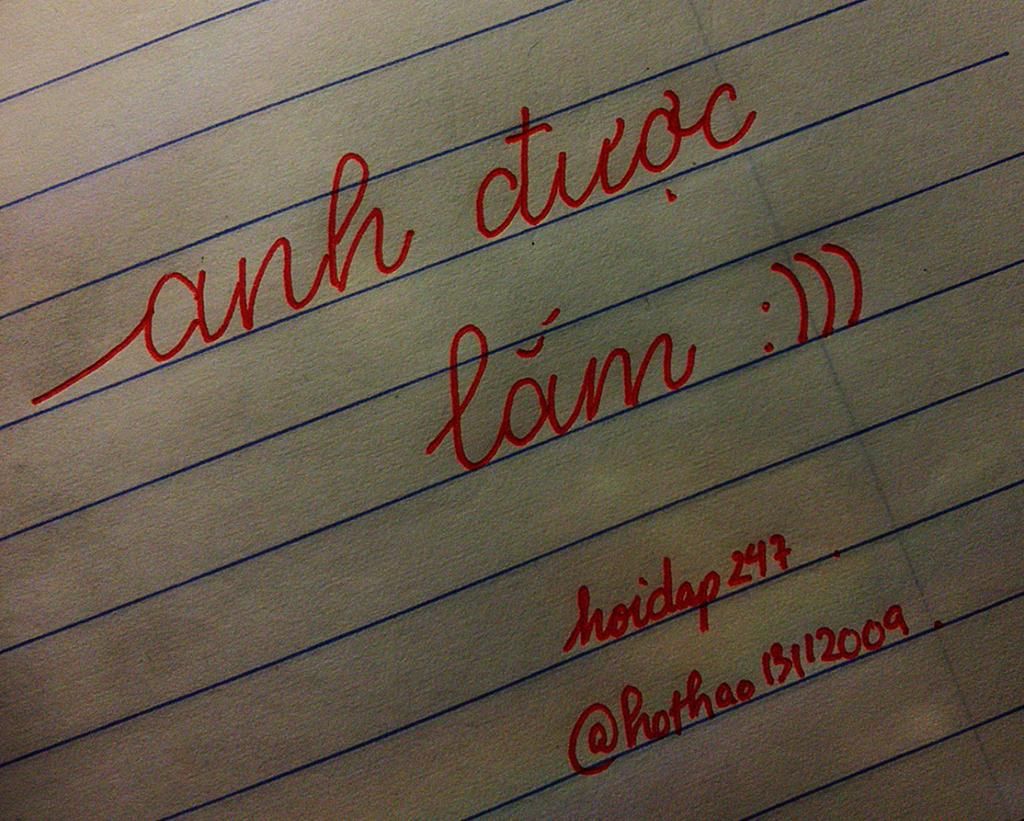 anh được
lắm :)))
hoidap247
@hothao13112009